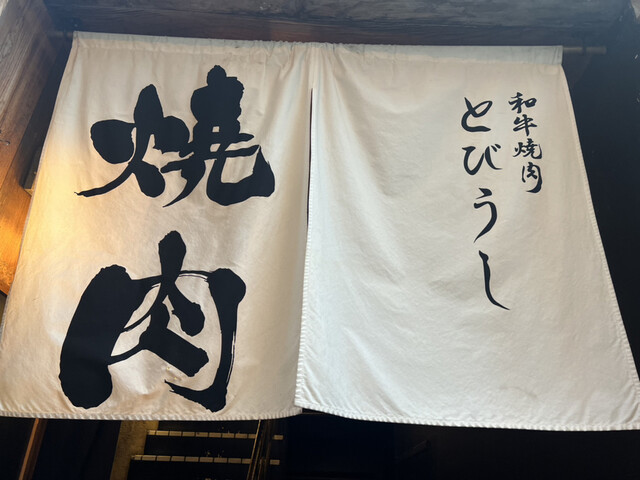 和牛焼肉
とびうし
焼肉